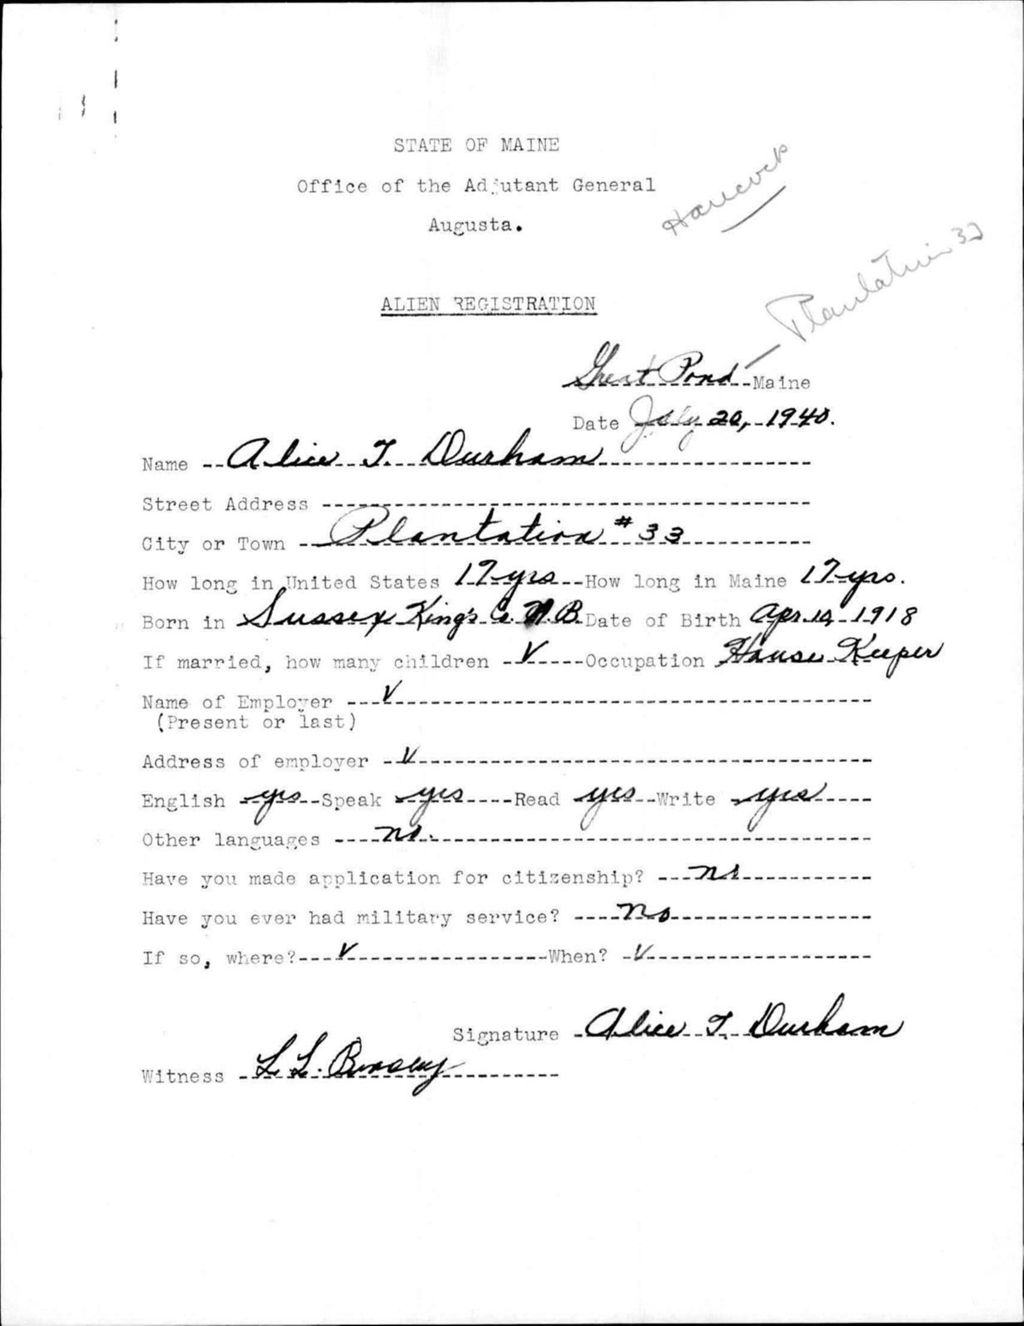 STATE OF MAINE
Office of the Adjutant General
Augusta.
Hancock
Plantation 33
ALIEN REGISTRATION
Great Pond Maine
Date July 20, 1940.
Name Alice T. Durham
Street Address
City or Town Plantation #33
How long in United States 17 yrs How long in Maine 17 yrs.
Born in Sussex King's Co. N.B. Date of Birth Apr. 1918
If married, how many children V Occupation House Keeper
Name of Employer V
(Present or last)
Address of employer V
English yes Speak yes Read yes Write yes
Other languages no.
Have you made application for citizenship? no
Have you ever had military service? no
If so, where? V When? V
Signature Alice T. Durham
Witness L. L.